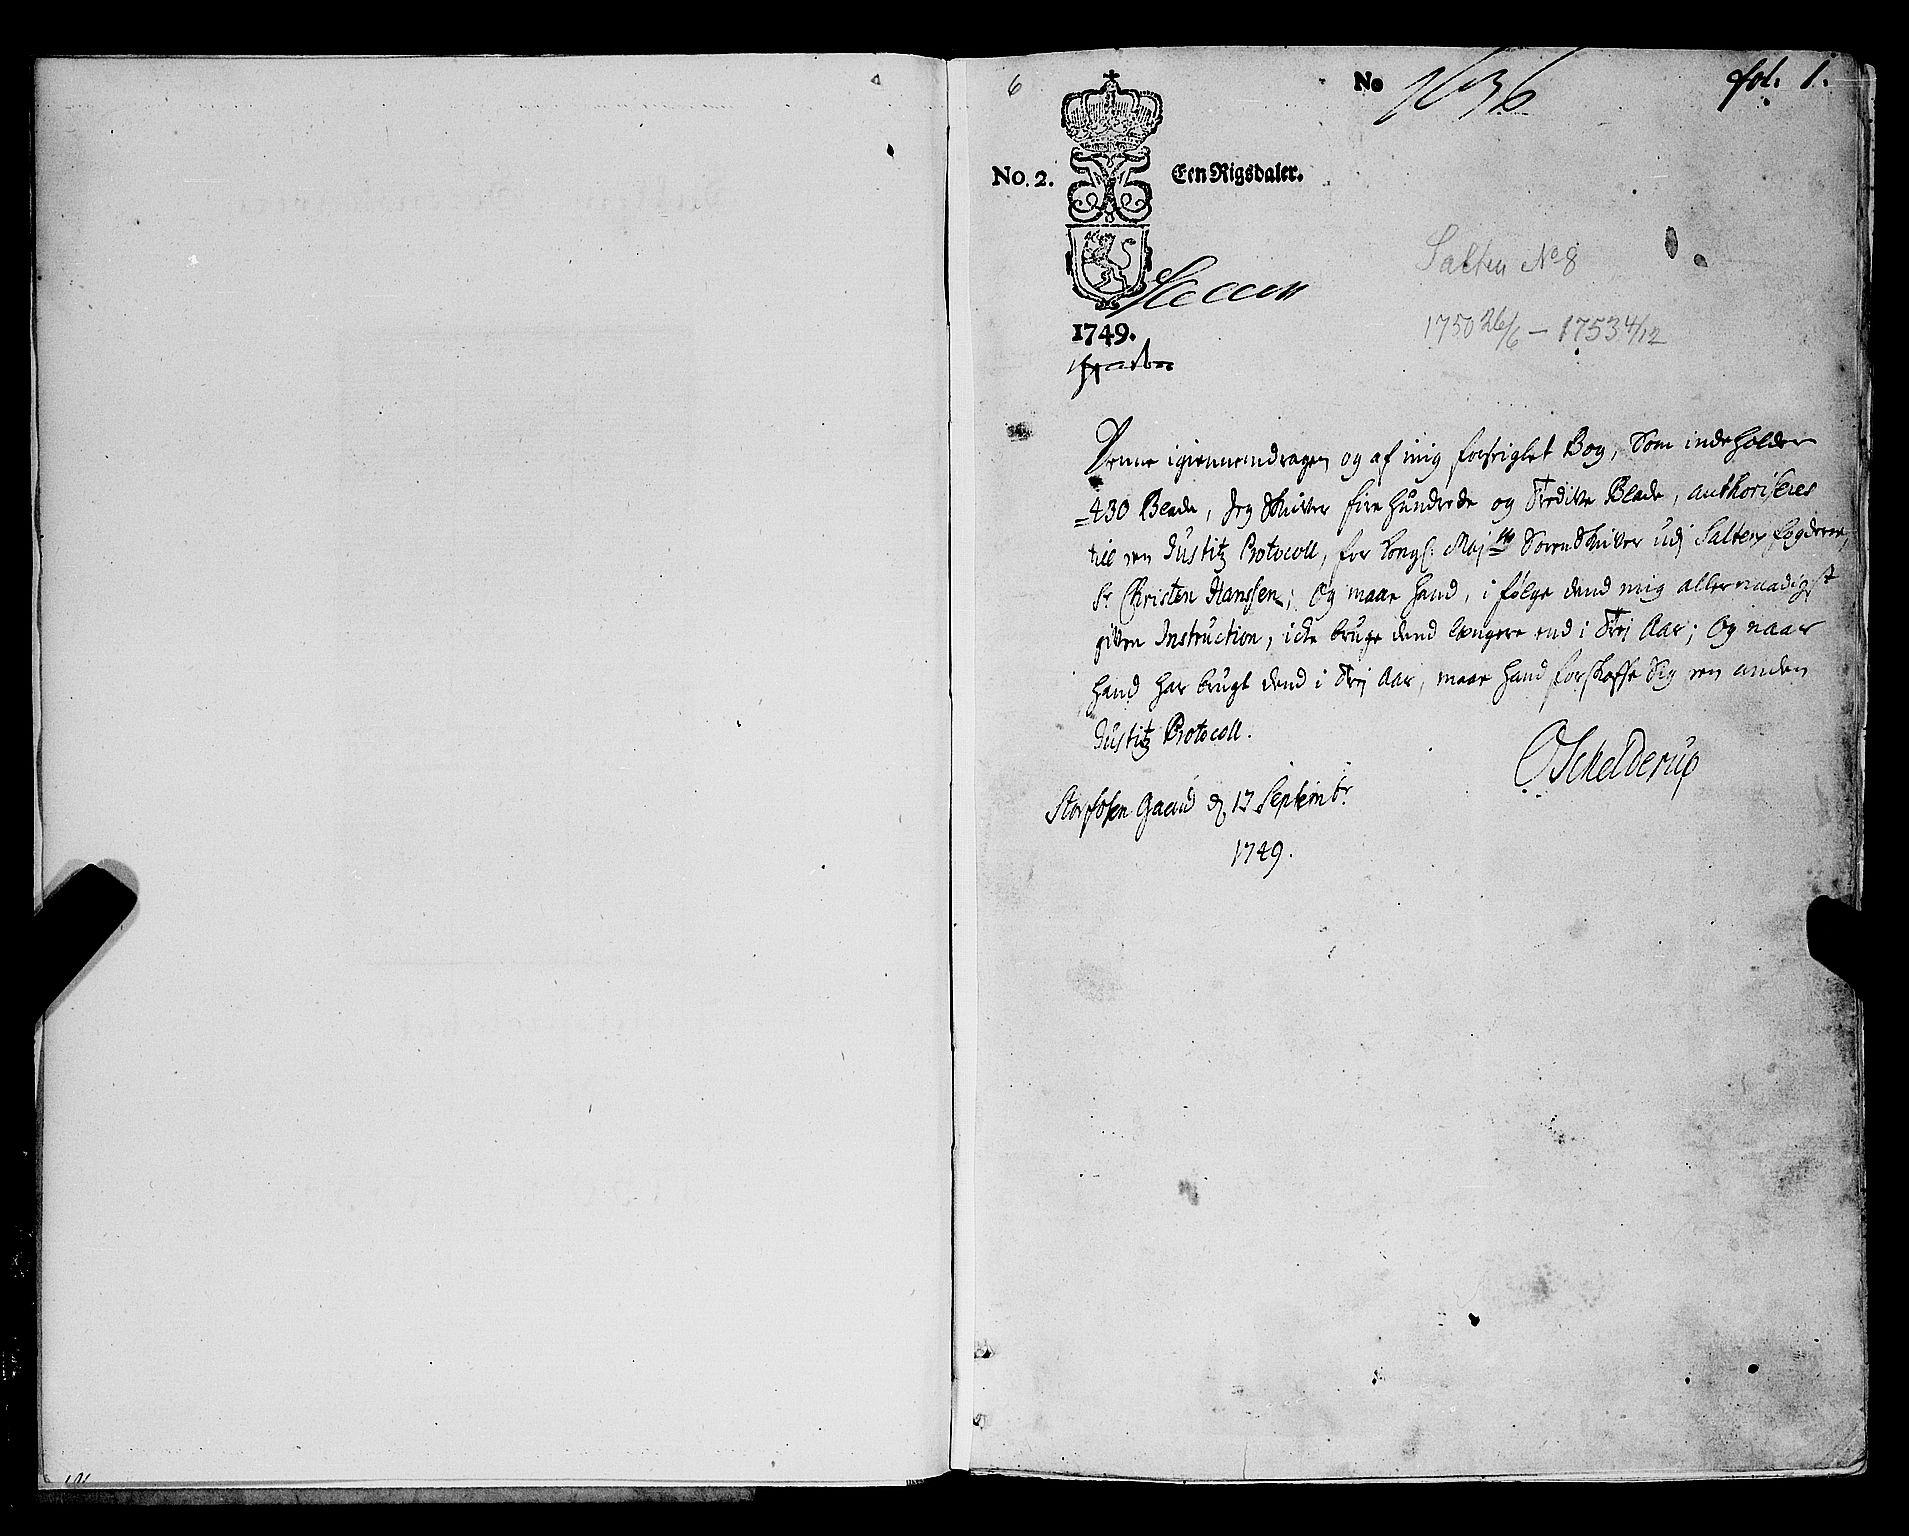 6
No 1636
fol. 1.
No. 2.
Een Rigsdaler.
Salten No 8
1749.
1750 26/6 — 1753 4/12
Denne igiennemdragen og af mig forseglet Bog, Som indeholder
=430 Blade, Jeg Skriver fire hundrede og Tredive Blade, authoriseres
til een Justitz Protocoll, for Kongl: Majts SorenSkriver udj Saltens fogderie,
Sr Christen Hanssen; Og maae hand, i følge dend mig allernaadigst
given Instruction, icke bruge dend længere end i Trej Aar; Og naar
hand har brugt dend i Trej Aar, maae hand forskaffe Sig een anden
Justitz Protocoll.
OSchelderup
Storfosen Gaard d 17 Septembr
1749.